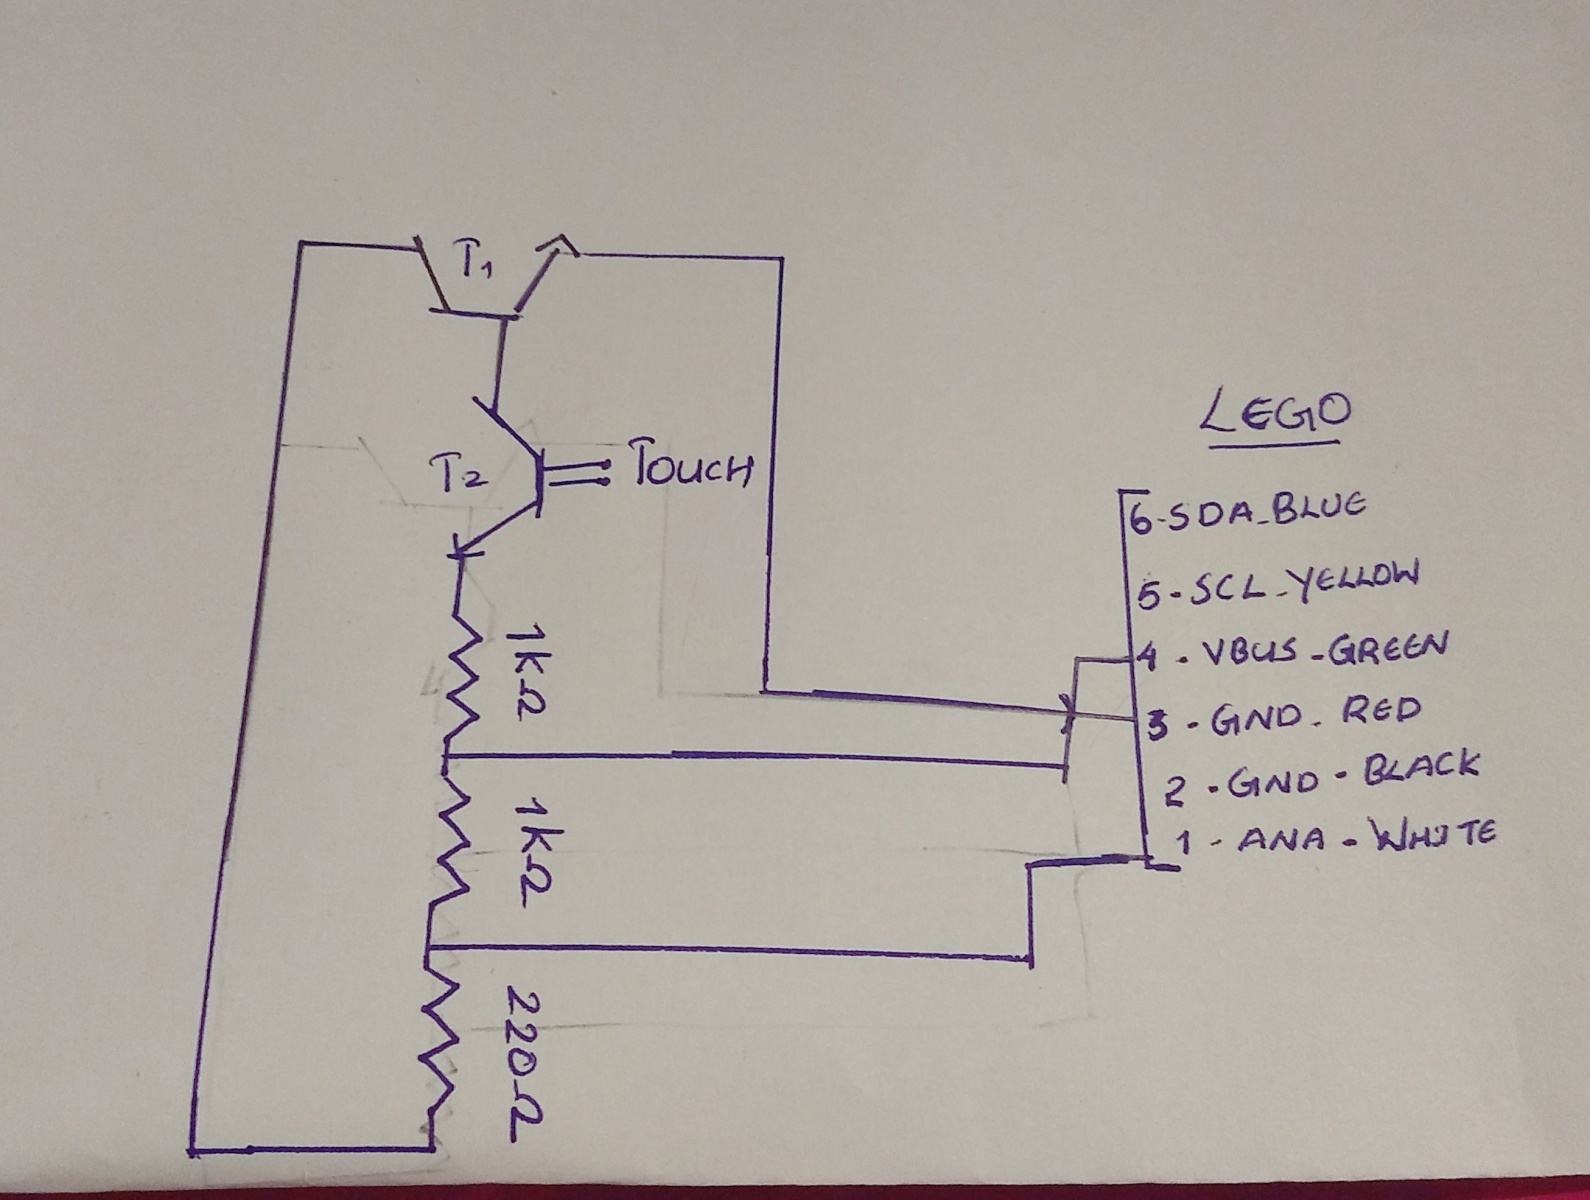 T1
T2
TOUCH
1kΩ
1kΩ
220Ω
LEGO
6-SDA_BLUE
5-SCL_YELLOW
4-VBUS-GREEN
3-GND-RED
2-GND-BLACK
1-ANA-WHITE